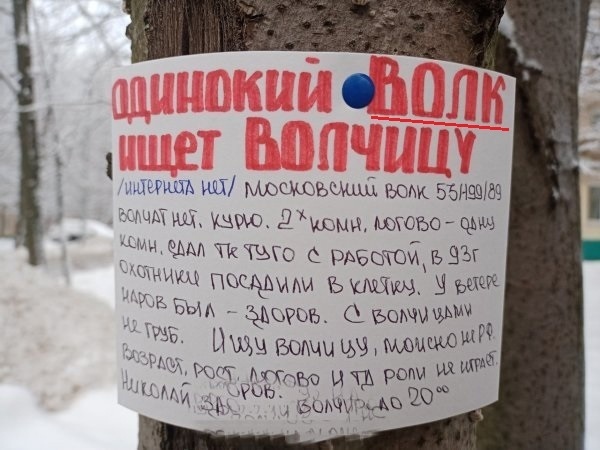 ОДИНОКИЙ ВОЛК
ИЩЕТ ВОЛЧИЦУ
/ИНТЕРНЕТА НЕТ/ МОСКОВСКИЙ ВОЛК 55/199/89
ВОЛЧАТ НЕТ, КУРЮ. 2Х КОМН. ЛОГОВО - ОДНУ
КОМН. СДАЛ ТК ТУГО С РАБОТОЙ, В 93Г
ОХОТНИКИ ПОСАДИЛИ В КЛЕТКУ. У ВЕТЕРЕ
НАРОВ БЫЛ - ЗДОРОВ. С ВОЛЧИЦАМИ
НЕ ГРУБ. ИЩУ ВОЛЧИЦУ, МОЖНО НЕ РФ.
ВОЗРАСТ, РОСТ, ЛОГОВО И ТД РОЛИ НЕ ИГРАЕТ.
НИКОЛАЙ ДО 20⁰⁰